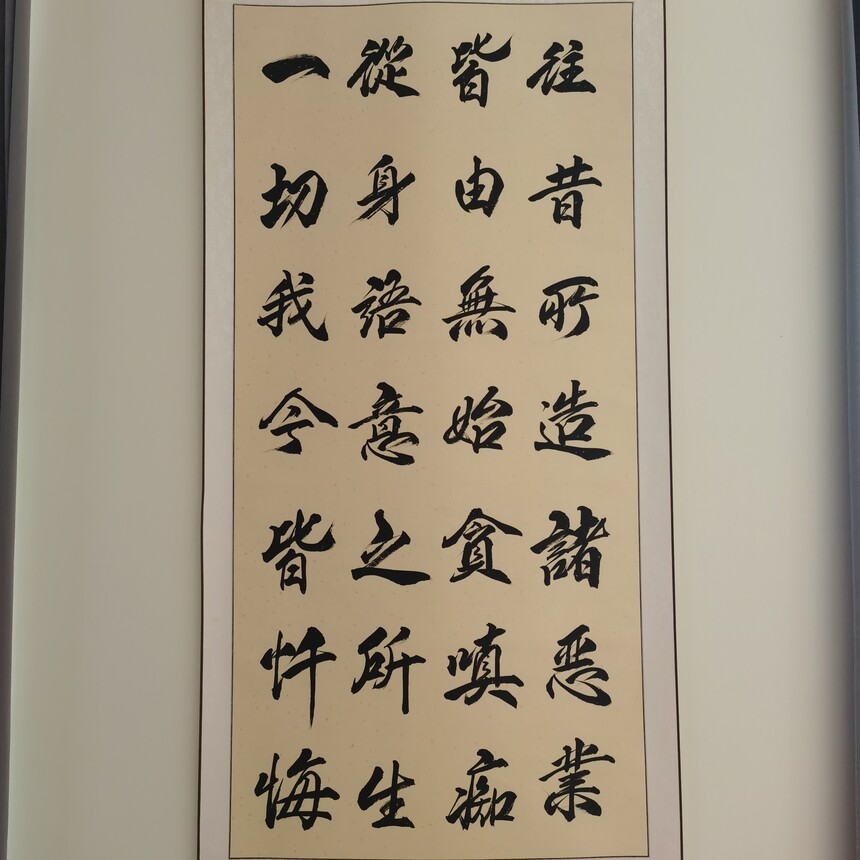 往昔所造諸恶業
皆由無始貪嗔痴
從身語意之所生
一切我今皆忏悔